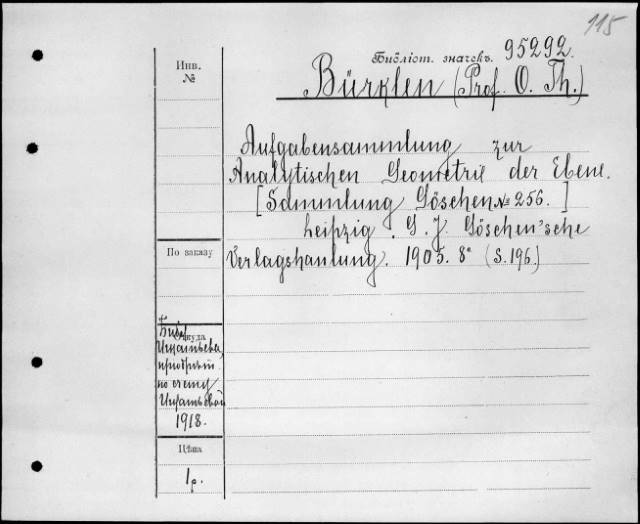 115
Библіот. значекъ. 95292.
Инв.
№
Bürklen (Prof. O. Th.)
Aufgabensammlung zur
Analytischen Geometrie der Ebene.
[Sammlung Göschen № 256.]
Leipzig. G. J. Göschen'sche
По заказу
Verlagshanlung. 1905. 8° (S. 196.)
Откуда
Библ
Игнатьева,
приобрѣт
по счету
1918.
Цѣна
1 р.